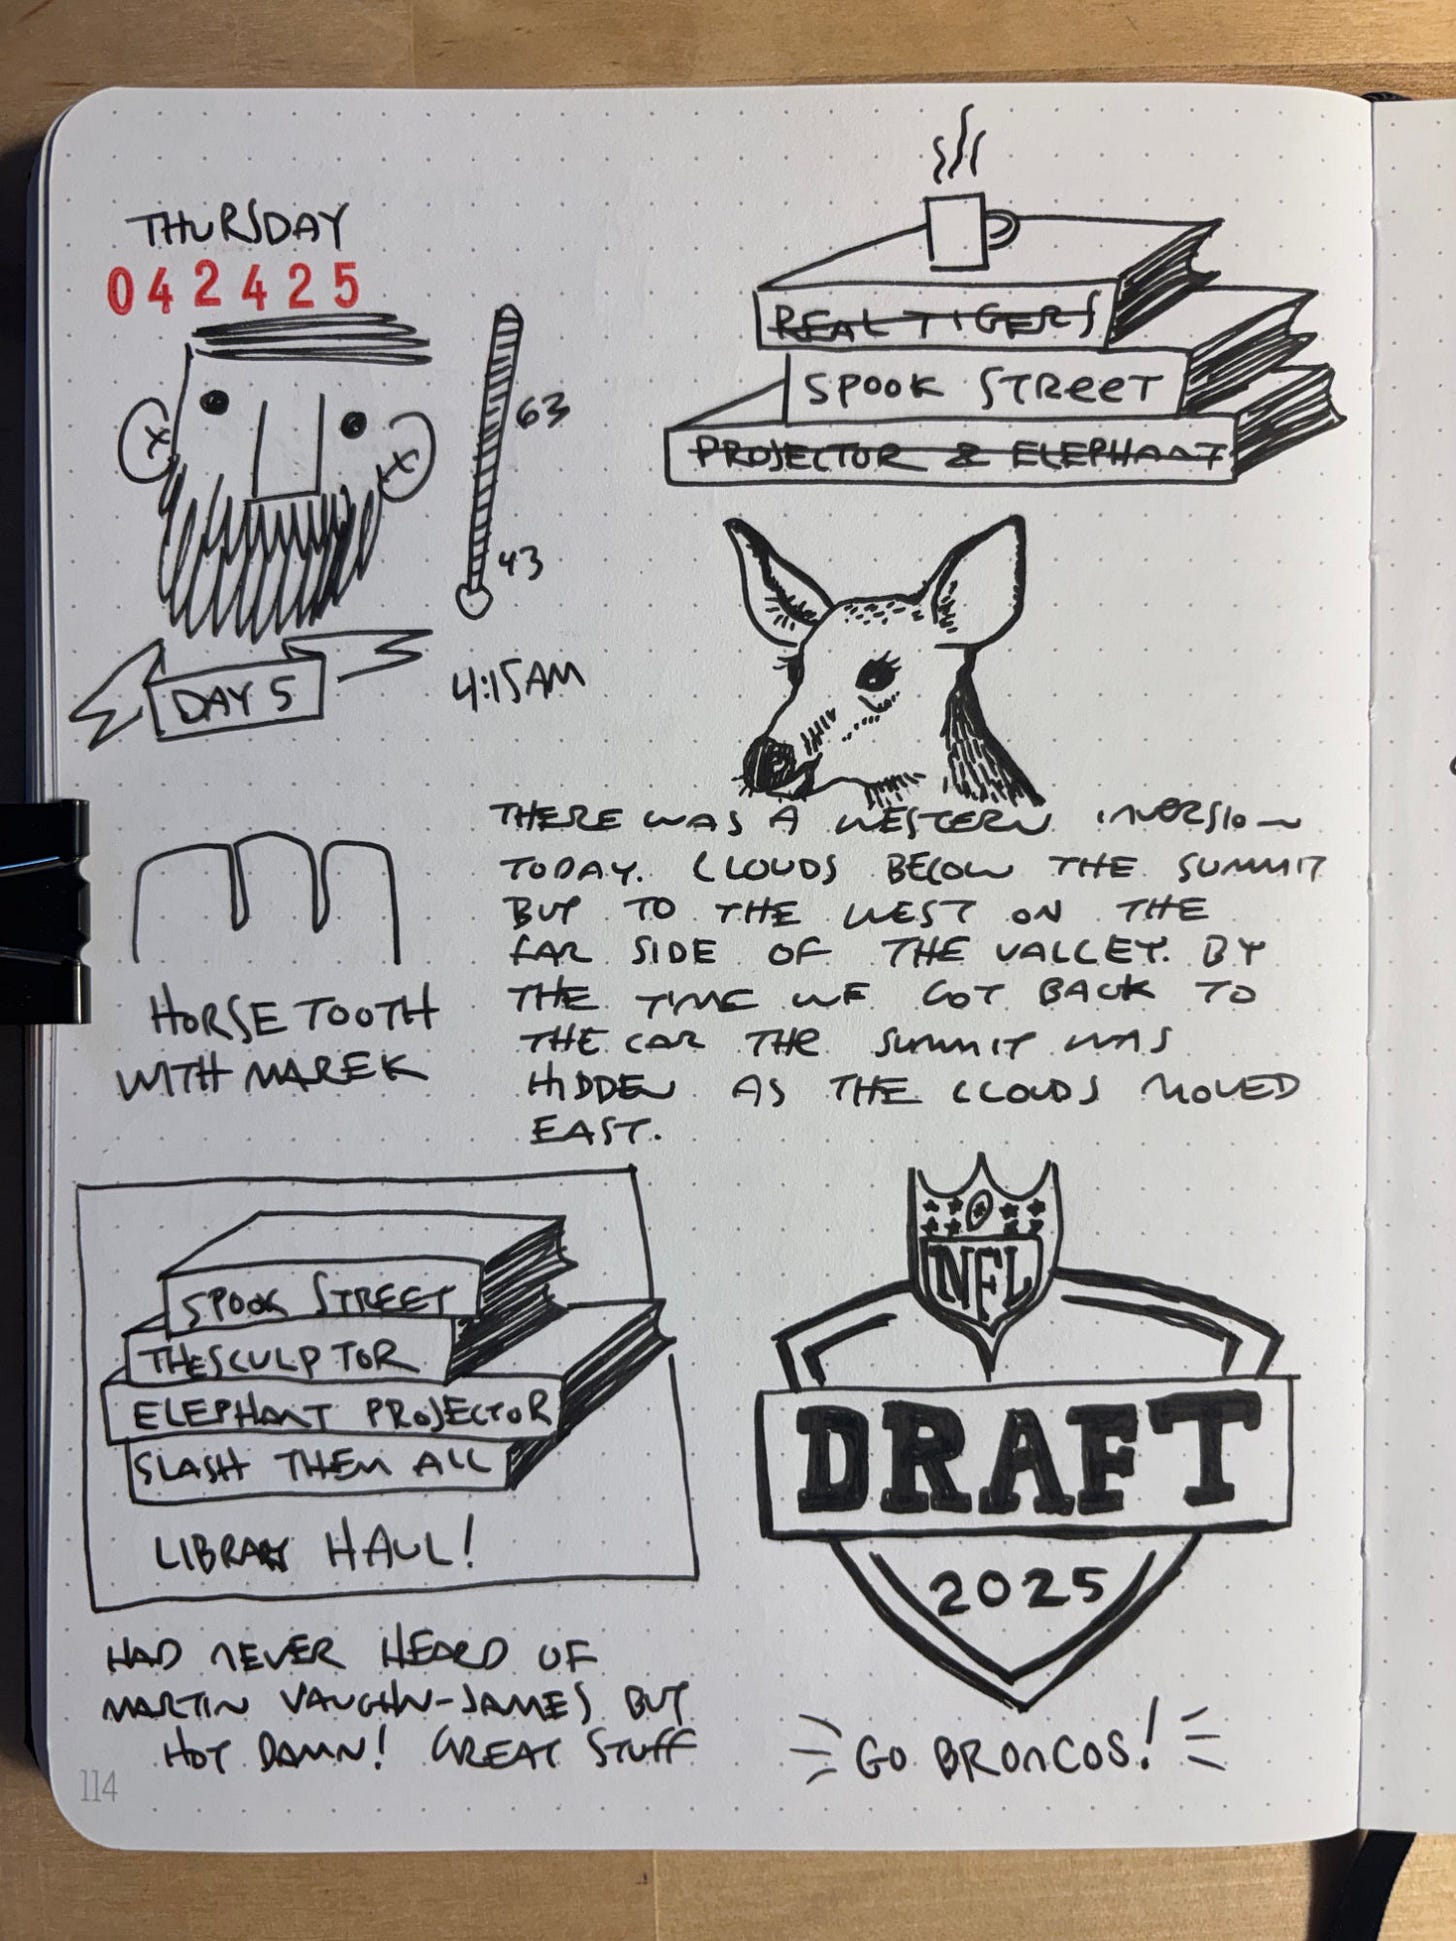 THURSDAY
042425
63
43
DAY 5
4:15AM
REAL TIGERS
SPOOK STREET
PROJECTOR & ELEPHANT
THERE WAS A WESTERN INVERSION
TODAY. CLOUDS BELOW THE SUMMIT
BUT TO THE WEST ON THE
FAR SIDE OF THE VALLEY. BY
THE TIME WE GOT BACK TO
THE CAR THE SUMMIT WAS
HIDDEN AS THE CLOUDS MOVED
EAST.
HORSETOOTH
WITH MAREK
SPOOK STREET
THE SCULPTOR
ELEPHANT PROJECTOR
SLASH THEM ALL
LIBRARY HAUL!
HAD NEVER HEARD OF
MARTIN VAUGHN-JAMES BUT
HOT DAMN! GREAT STUFF
NFL
DRAFT
2025
GO BRONCOS!
114